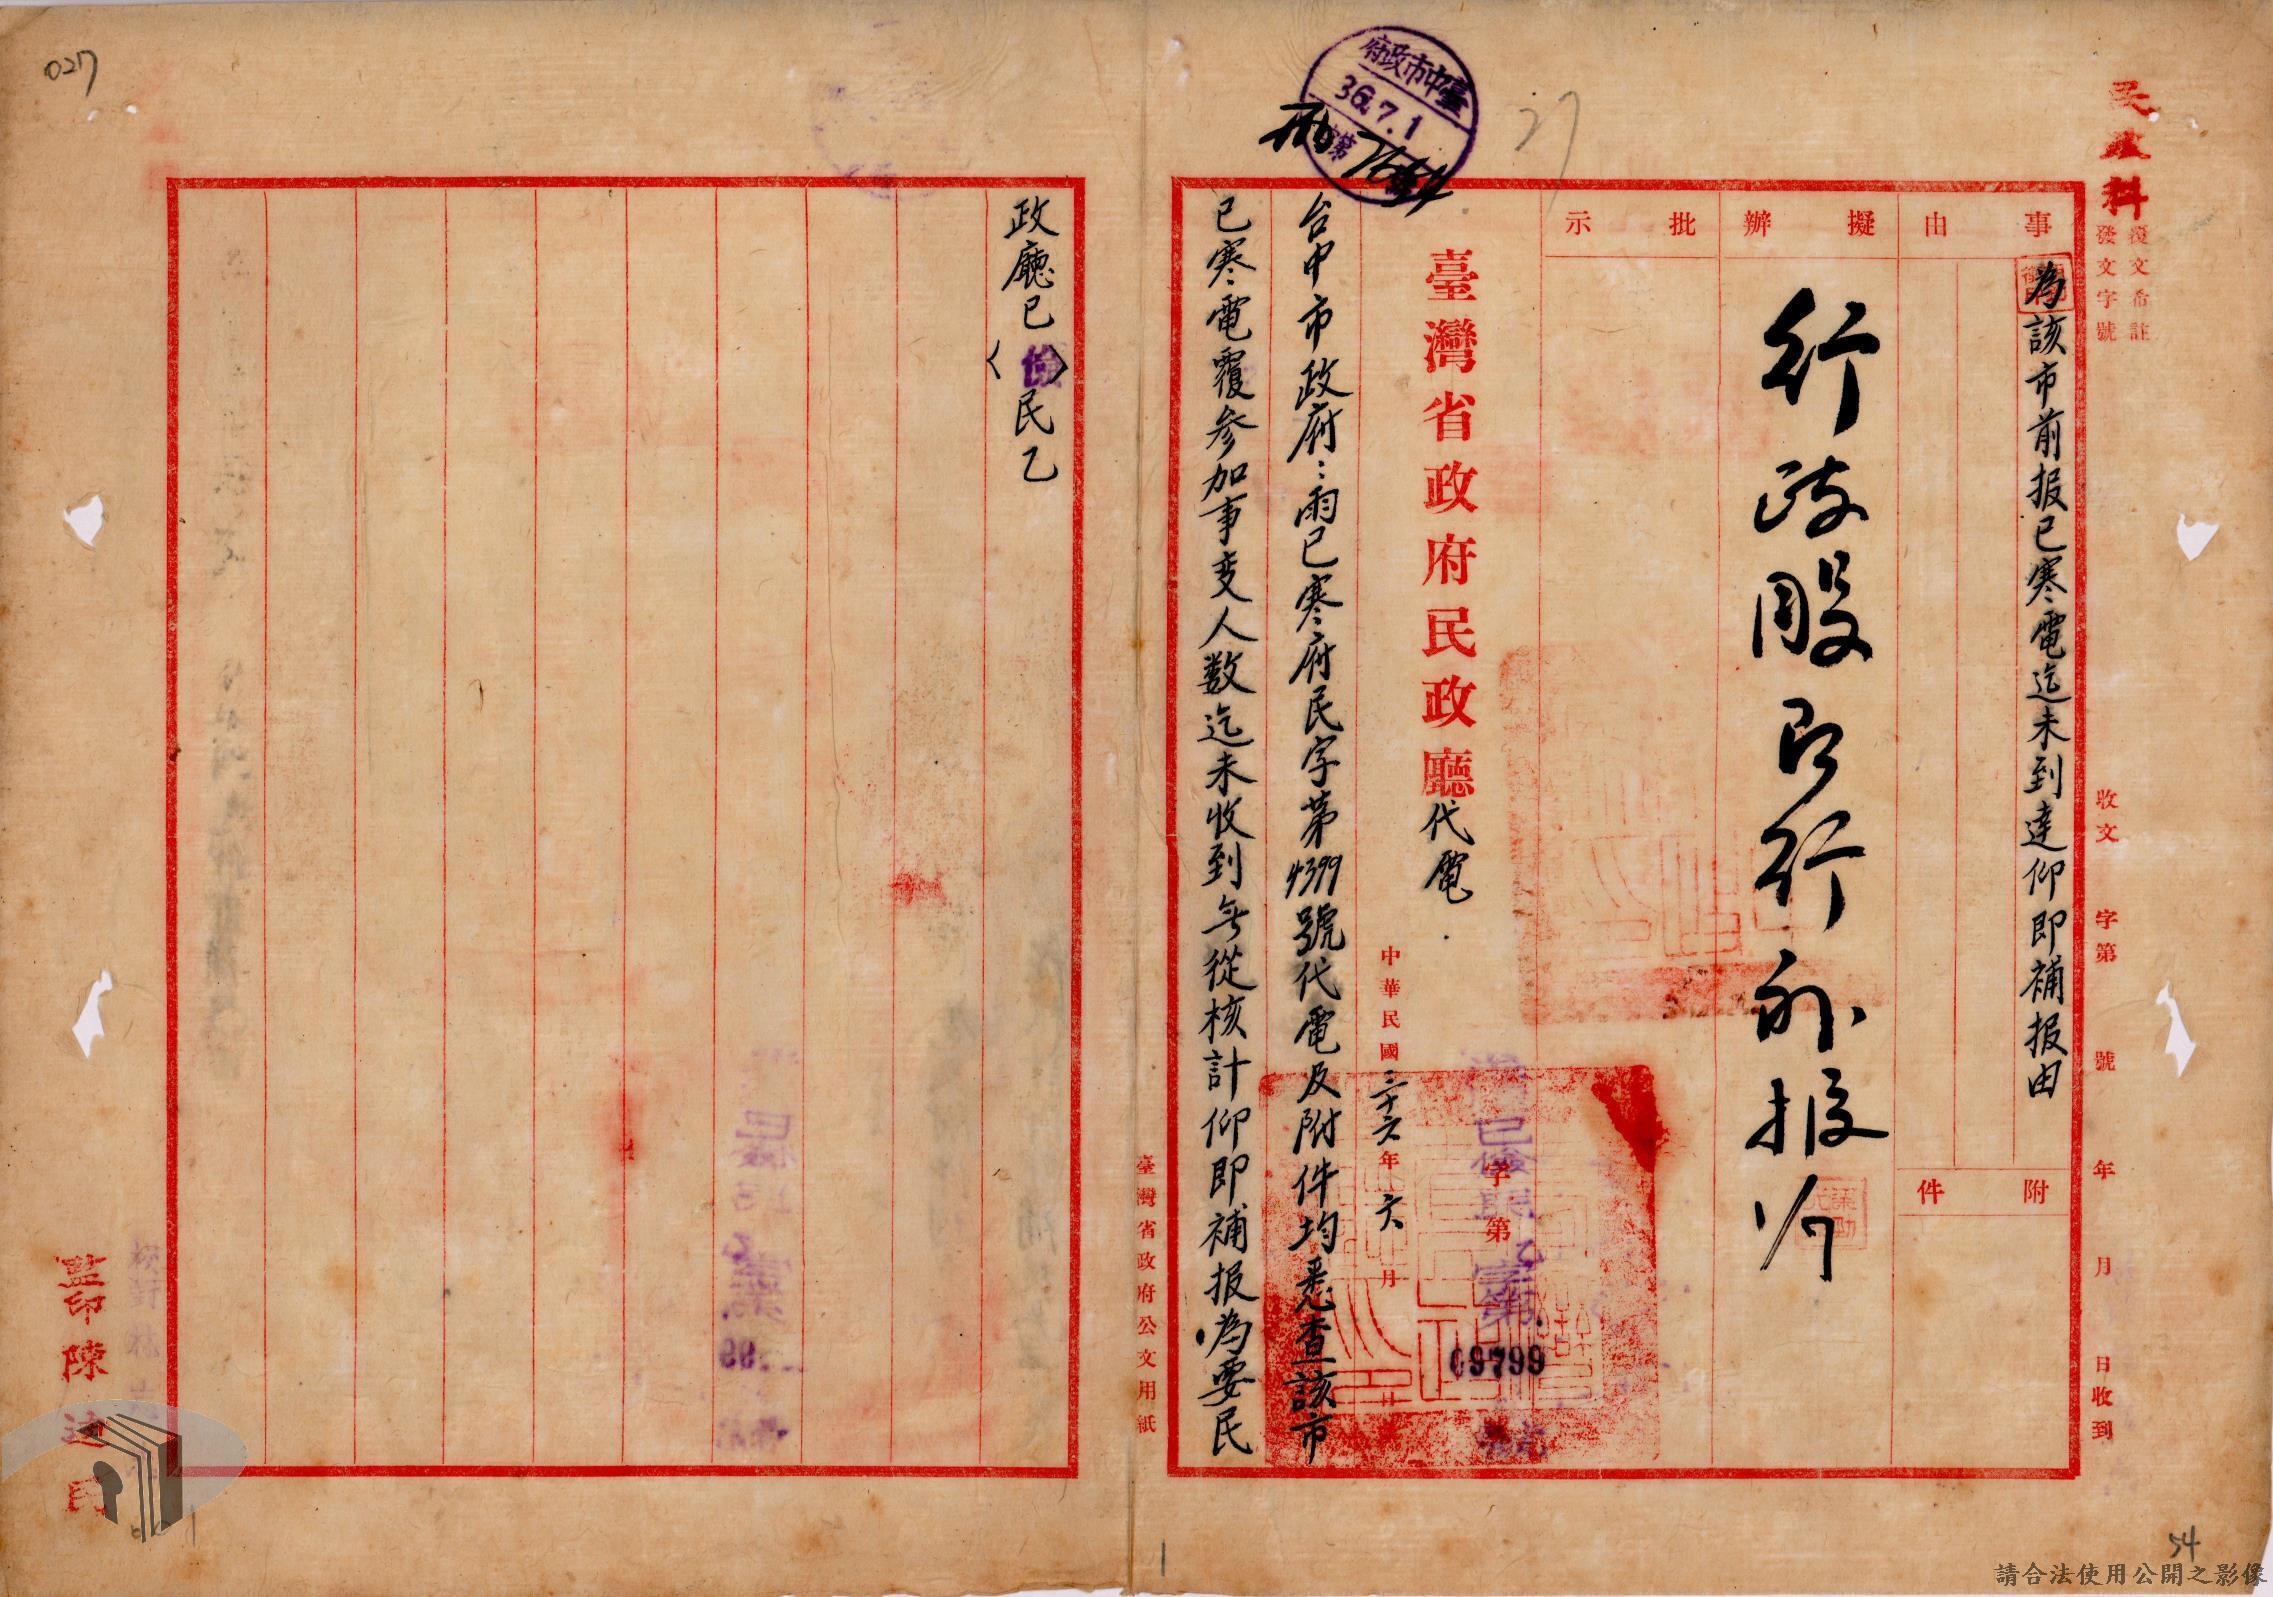 民政科
覆文希註
發文字號
收文 字第 號 年 月 日收到
事由
為該市前报已寒電迄未到達仰即補报由
附件
擬辦
行政股即行補报
批示
臺灣省政府民政廳代電
中華民國三十六年六月
字第
乙字第
09799
號
台中市政府：兩已寒府民字第4399號代電及附件均悉查該市
已寒電覆参加事变人数迄未收到無從核計仰即補报為要民
政廳已〈儉〉民乙
臺中市政府
36.7.1
第
27
臺灣省政府公文用紙
監印陳
027
54
請合法使用公開之影像